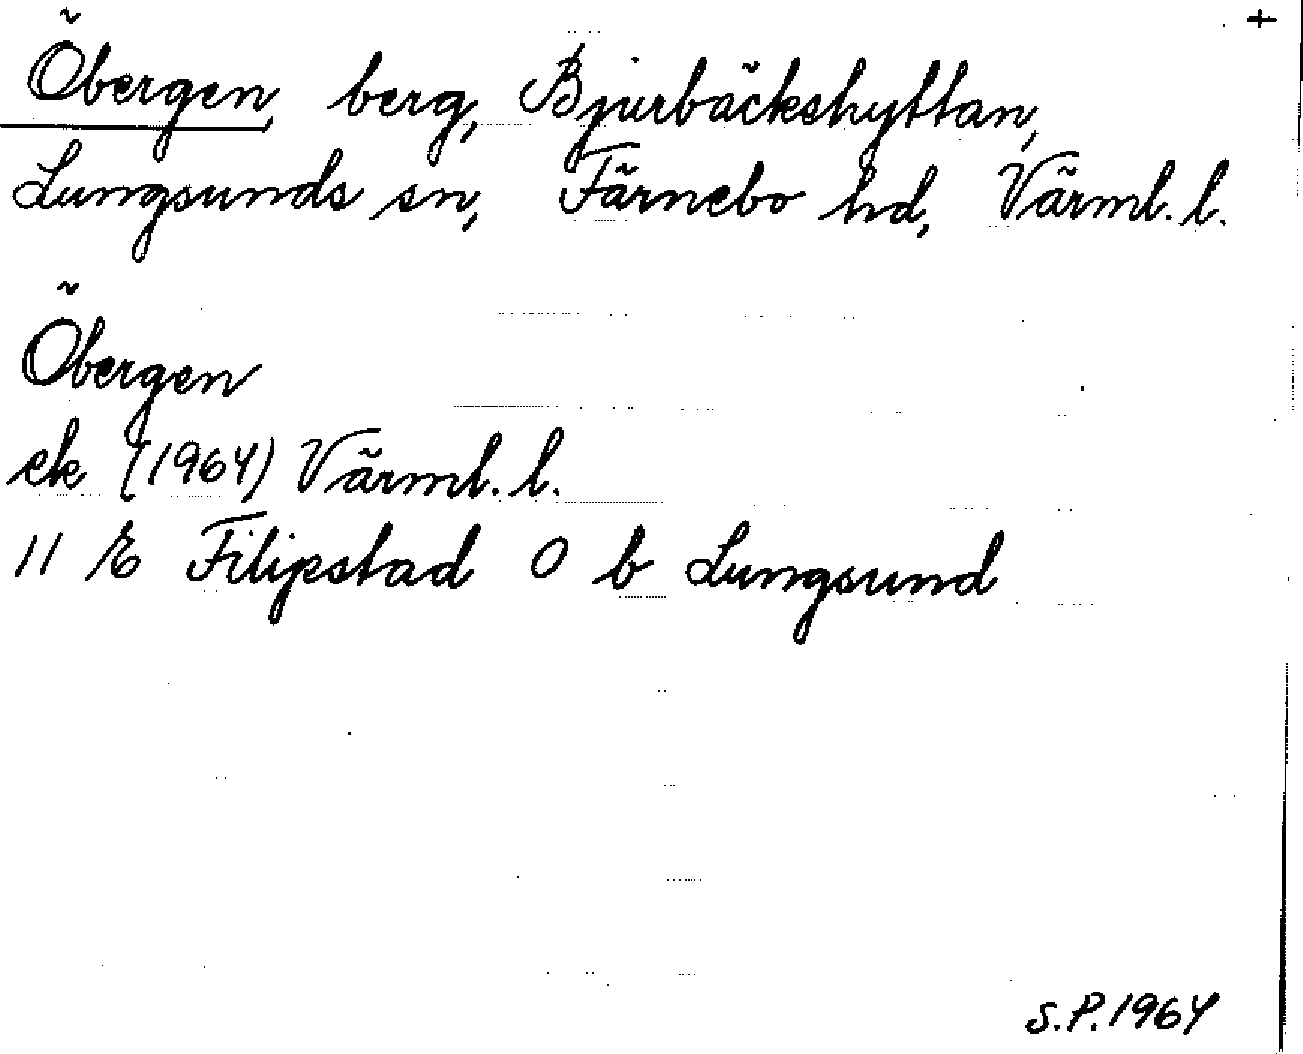 +
Öbergen, berg, Bjurbäckshyttan,
Lungsunds sn, Färnebo hd, Värml. l.
Öbergen
ek (1964) Värml. l.
11 E Filipstad O b Lungsund
S.P. 1964